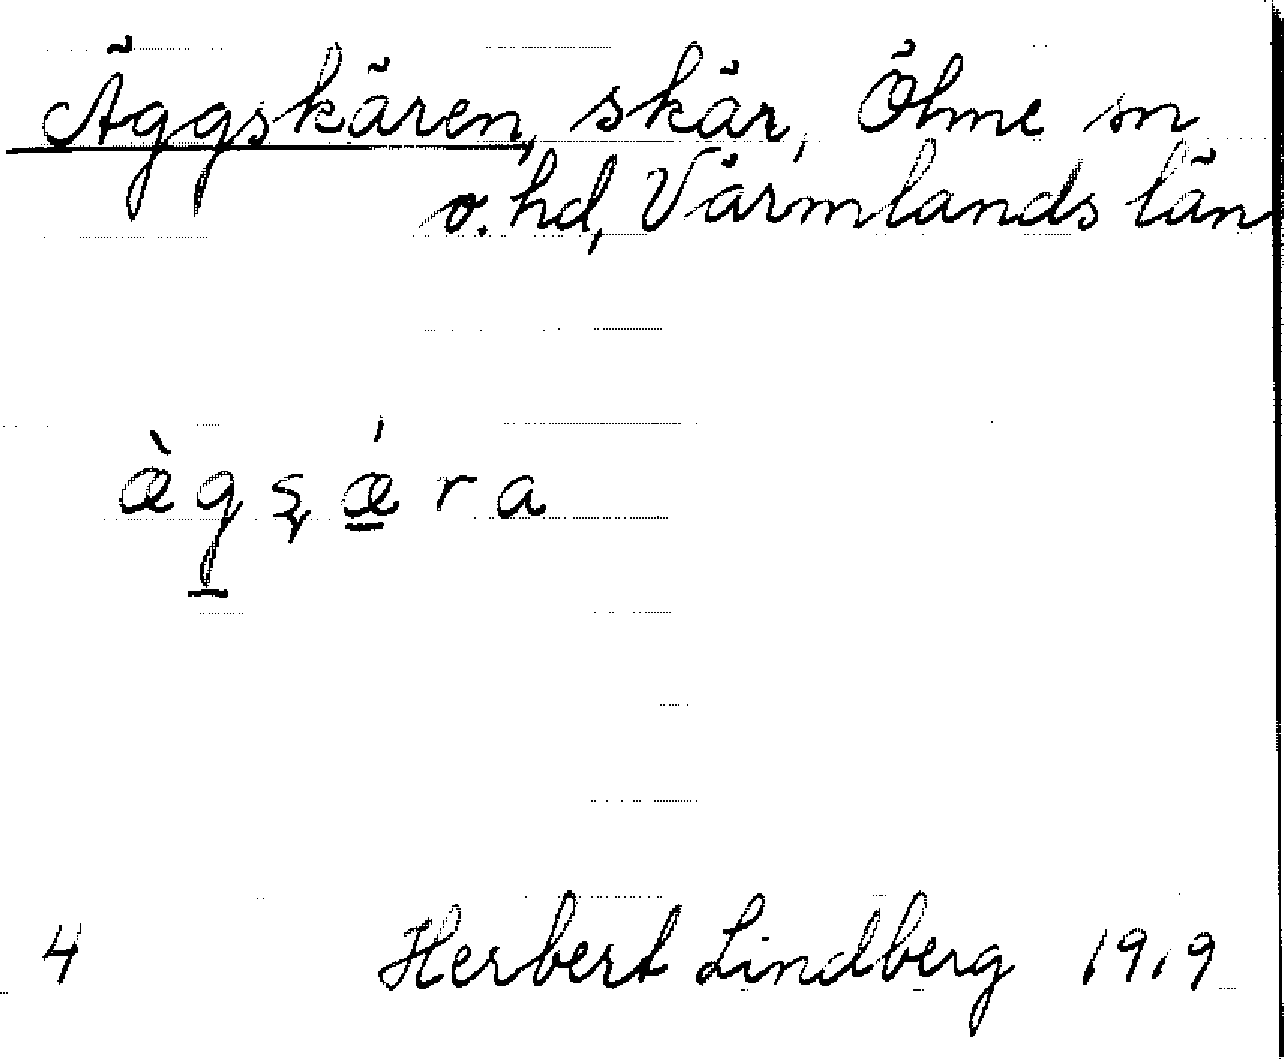 Äggskären, skär, Ölme sn
o. hd, Värmlands län
æ̀gʂǽra
4 Herbert Lindberg 1919